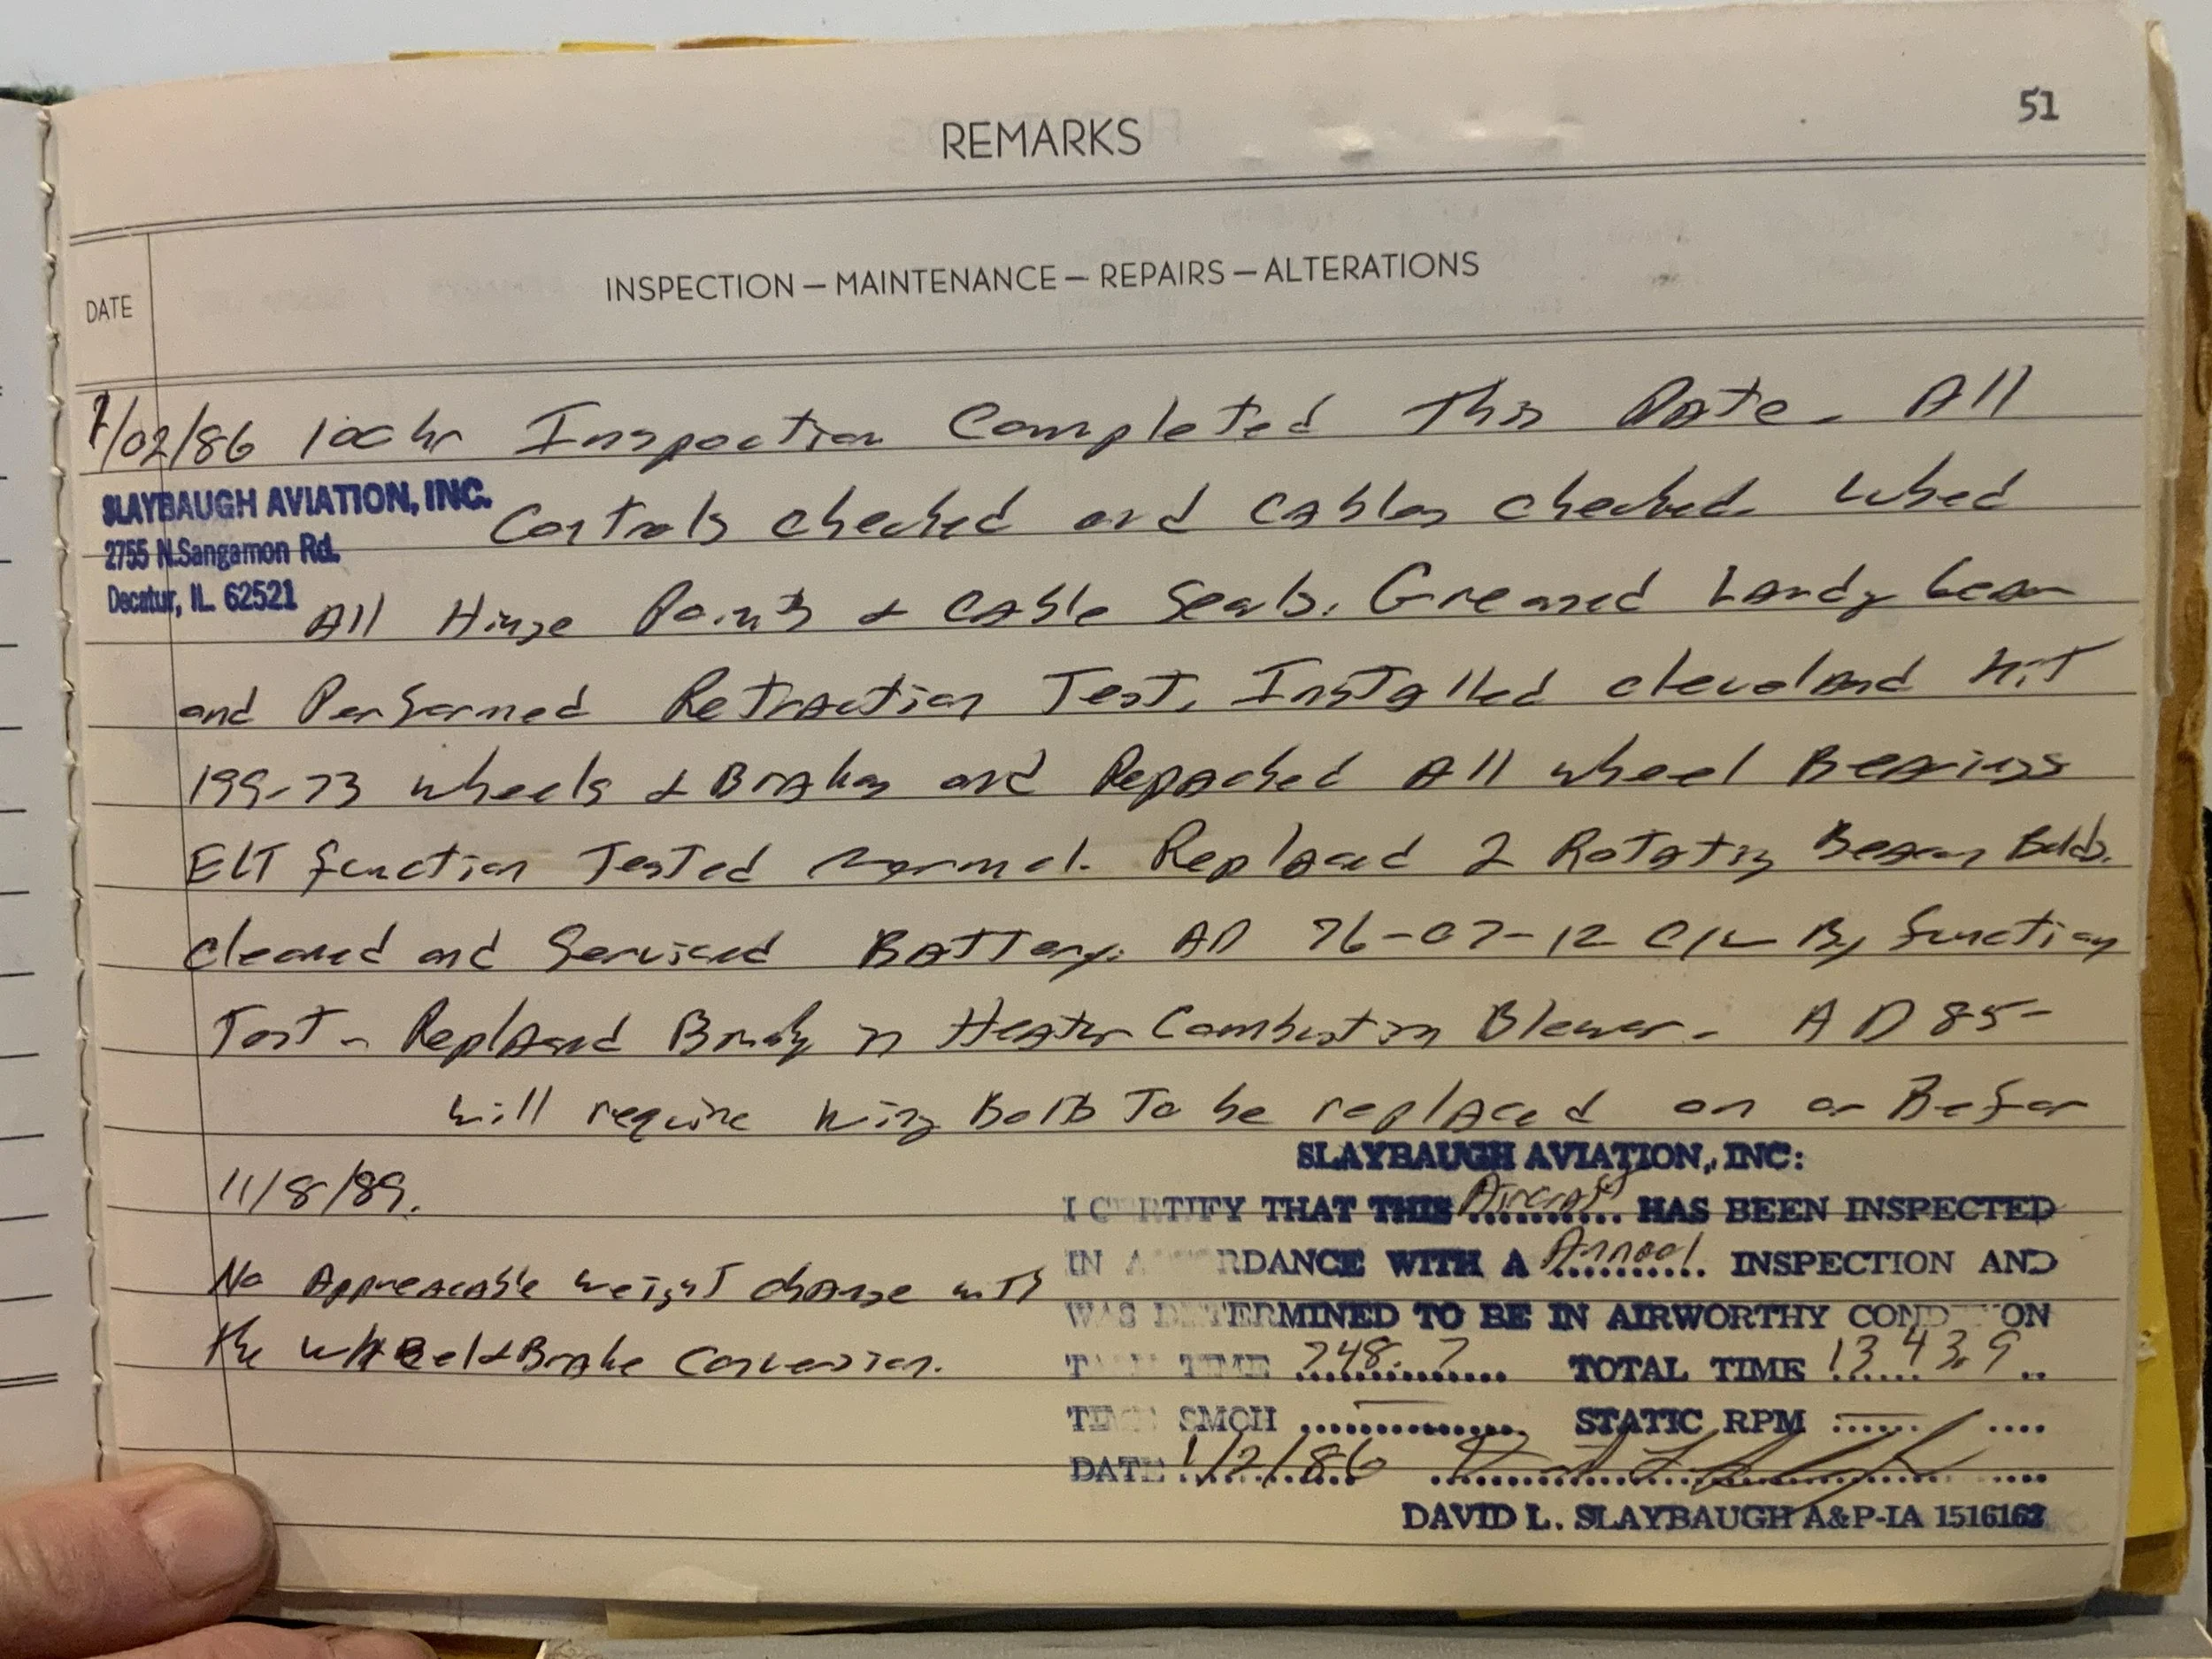 51
REMARKS
DATE
INSPECTION — MAINTENANCE — REPAIRS — ALTERATIONS
1/02/86 100 hr Inspection Completed This Date. All
SLAYBAUGH AVIATION, INC.
2755 N. Sangamon Rd.
Decatur, IL 62521
Controls checked and Cables checked. Lubed
All Hinge Points & Cable Seals. Greased Landg Gear
and Performed Retraction Test. Installed Cleveland Kit
199-73 wheels & Brakes and Repacked All wheel Bearings
ELT function Tested normal. Replaced 2 Rotating Beacon Bulbs.
Cleaned and Serviced Battery. AD 76-07-12 C/W By function
Test - Replaced Brush in Heater Combustion Blower. AD 85-
will require wing Bolts To be replaced on or Before
11/8/89.
No Appreacable weight change with
the wheel & Brake Conversion.
SLAYBAUGH AVIATION, INC:
I CERTIFY THAT THIS Aircraft HAS BEEN INSPECTED
IN ACCORDANCE WITH A Annual INSPECTION AND
WAS DETERMINED TO BE IN AIRWORTHY CONDITION
TACH TIME 748.7 TOTAL TIME 1343.9
TIME SMOH — STATIC RPM —
DATE 1/2/86
DAVID L. SLAYBAUGH A&P-IA 1516162